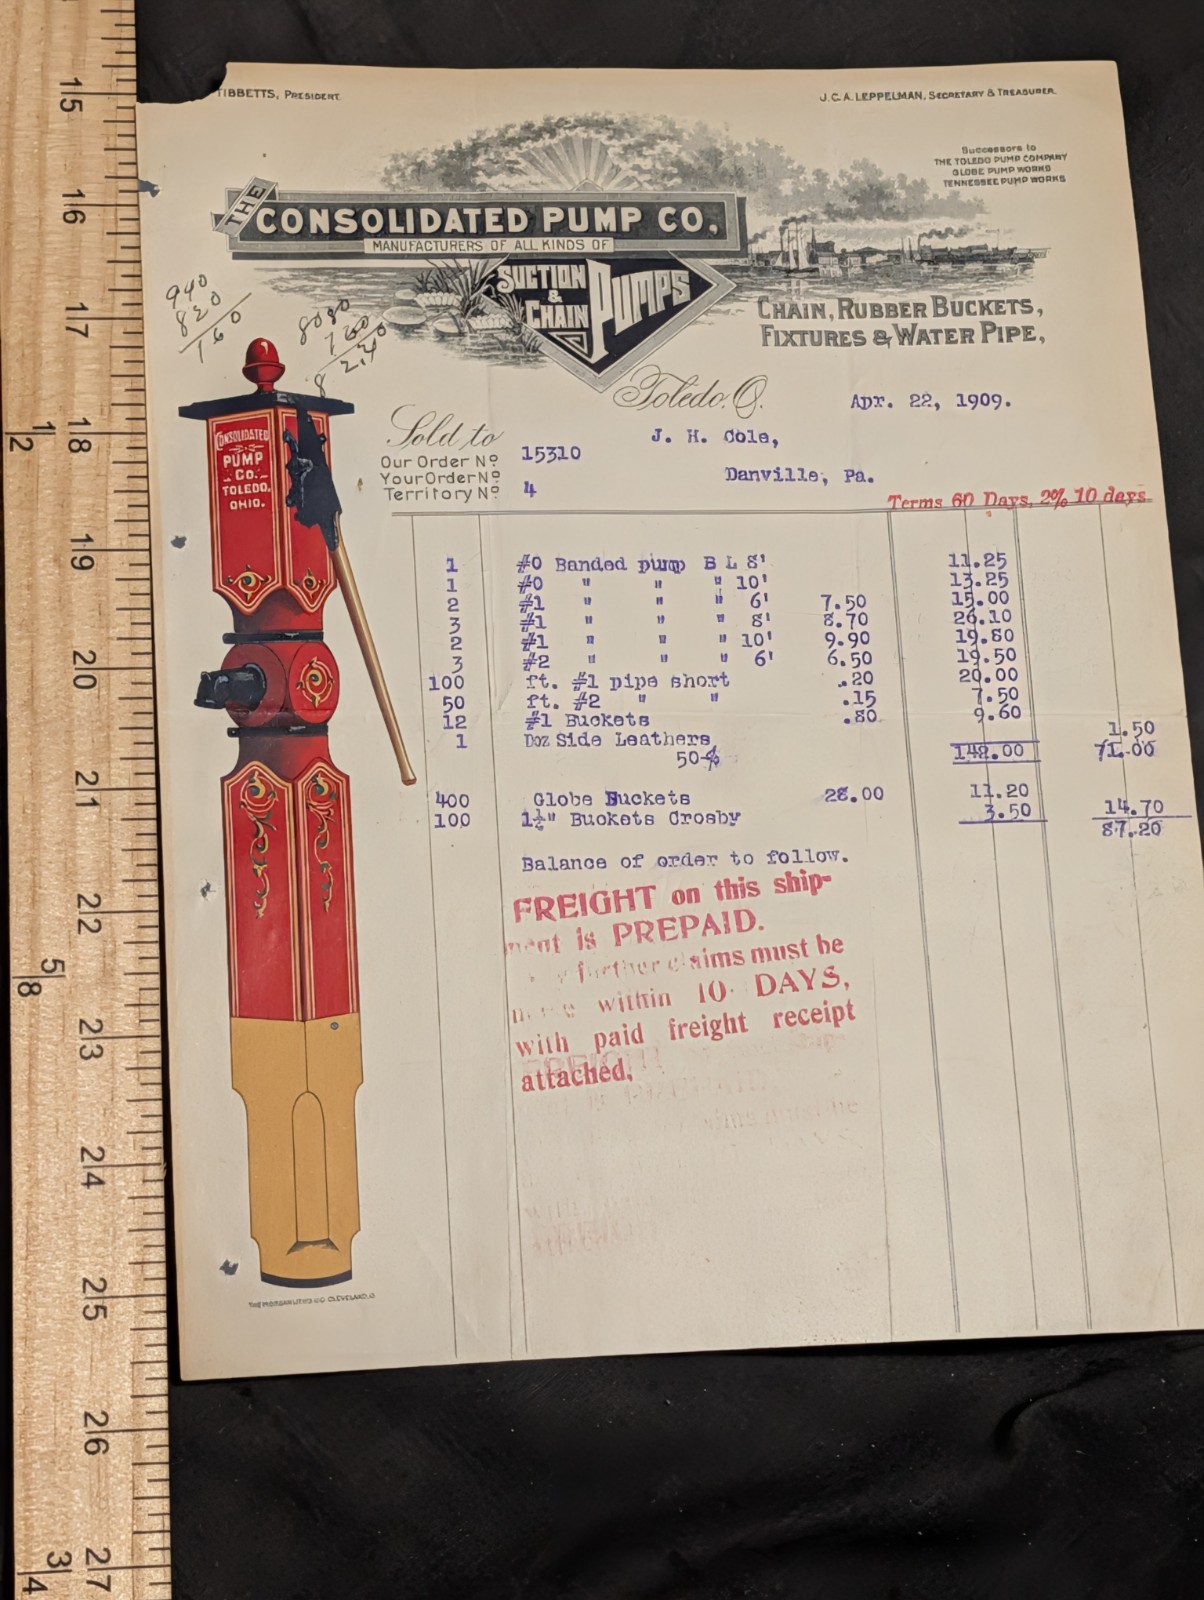 TIBBETTS, PRESIDENT.
J.C.A. LEPPELMAN, SECRETARY & TREASURER.
Successors to
THE TOLEDO PUMP COMPANY
GLOBE PUMP WORKS
TENNESSEE PUMP WORKS
THE CONSOLIDATED PUMP CO,
MANUFACTURERS OF ALL KINDS OF
SUCTION & CHAIN PUMPS
CHAIN, RUBBER BUCKETS,
FIXTURES & WATER PIPE,
940
820
160
8080
160
Toledo. O. Apr. 22, 1909.
Sold to J. H. Cole,
Our Order No 15310
Your Order No Danville, Pa.
Territory No 4
Terms 60 Days, 2% 10 days
CONSOLIDATED
PUMP
CO.
TOLEDO,
OHIO.
1 #0 Banded pump B L 8' 11.25
1 #0 " " " 10' 13.25
2 #1 " " " 6' 7.50 15.00
3 #1 " " " 8' 8.70 26.10
2 #1 " " " 10' 9.90 19.80
3 #2 " " " 6' 6.50 19.50
100 ft. #1 pipe short .20 20.00
50 ft. #2 " " .15 7.50
12 #1 Buckets .80 9.60
1 Doz Side Leathers 1.50
50% 142.00 71.00
400 Globe Buckets 28.00 11.20
100 1½" Buckets Crosby 3.50 14.70
87.20
Balance of order to follow.
FREIGHT on this ship-
ment is PREPAID.
further claims must be
within 10 DAYS,
with paid freight receipt
attached,
THE MORGAN LITHO CO. CLEVELAND, O
15
16
17
18
19
20
21
22
23
24
25
26
27
1/2
5/8
3/4